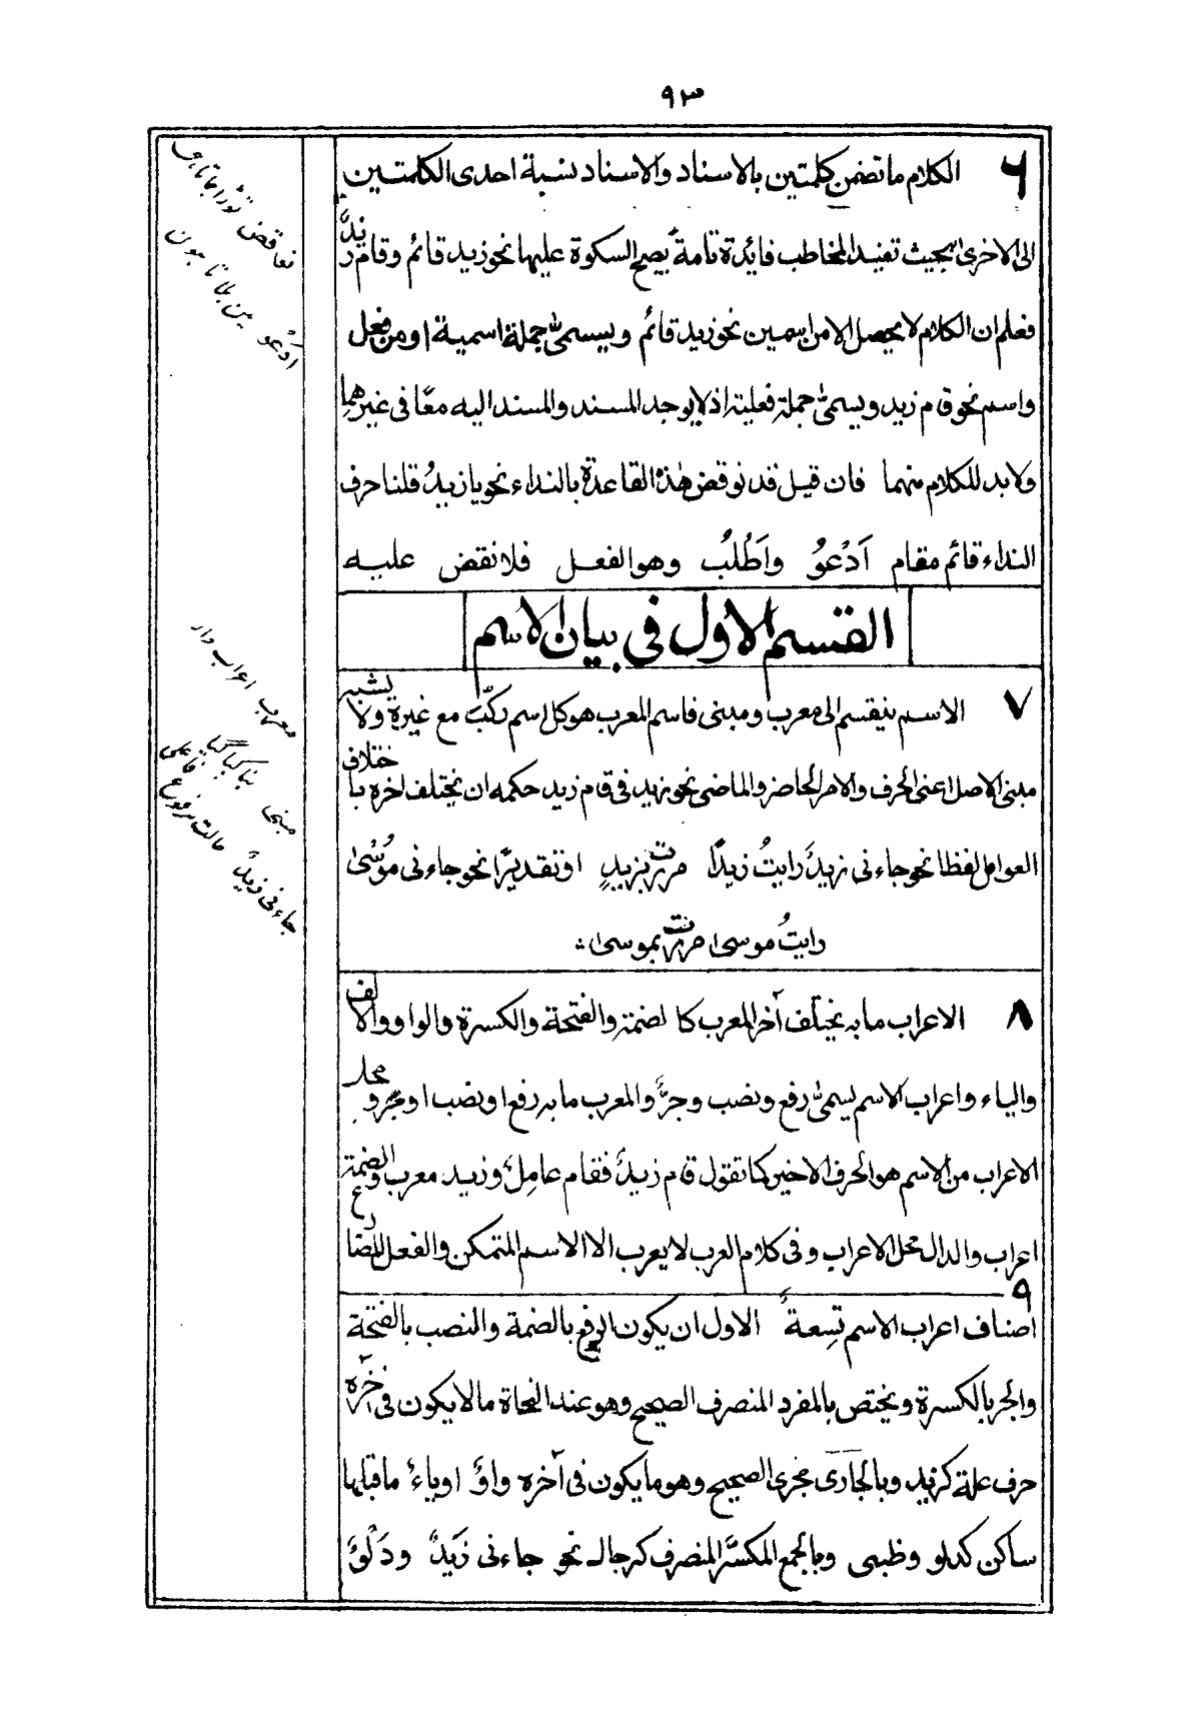 ۹۳
۶ الكلام ما تضمن كلمتين بالاسناد والاسناد نسبة احدى الكلمتين
الى الاخرى بحيث تفيد المخاطب فائدة تامة يصح السكوة عليها نحو زيد قائم وقام زيدٌ
فعلم ان الكلام لا يحصل الا من اسمين نحو زيد قائم ويسمىٰ جملة اسمية او من فعل
واسم نحو قام زيد ويسمىٰ جملة فعلية اذ لا يوجد المسند والمسند اليه معًا فى غيرهما
ولا بد للكلام منهما فان قيل قد نوقض هٰذه القاعدة بالنداء نحو يا زيدُ قلنا حرف
النداء قائم مقام اَدْعُوْ واَطْلُبُ وهو الفعل فلا نقض عليه
القسم الاول فى بيان الاسم
۷ الاسم ينقسم الى معرب ومبنى فاسم المعرب هو كل اسم ركّب مع غيره ولا يشبه
مبنى الاصل اعنى الحرف والامر الحاضر والماضى نحو زيد فى قام زيد حكمه ان يختلف اخره باختلاف
العوامل لفظا نحو جاءنى زيدٌ رايتُ زيدًا مررت بزيدٍ او تقديرًا نحو جاءنى مُوْسٰى
رايتُ موسىٰ مررت بموسىٰ؛
۸ الاعراب ما به يختلف آخر المعرب كا لضمة والفتحة والكسرة والواو والالف
والياء واعراب الاسم يسمىٰ رفع ونصب وجرٌّ والمعرب ما به رفع او نصب او جر ومحل
الاعراب من الاسم هو الحرف الاخير كما تقول قام زيدٌ فقام عامِلٌ وزيد معرب والضمة
اعراب والدال محل الاعراب وفى كلام العرب لا يعرب الا الاسم المتمكن والفعل المضارع
۹
اصناف اعراب الاسم تِسعةٌ الاول ان يكون الرفع بالضمة والنصب بالفتحة
والجر بالكسرة ويختص بالمفرد المنصرف الصحيح وهو عند النحاة ما لا يكون فى آخره
حرف علة كزيد وبالجارى مجرى الصحيح وهو ما يكون فى آخره واوٌ او ياءٌ ما قبلها
ساكن كدلو وظبى وبالجمع المكسَّر المنصرف كرجال نحو جاءنى زَيدٌ ودَلْوٌ
اَدعُو میں بلاتا ہوں
معرب اعراب دار
مبنى بنا کیا گیا
جاءنى زيدٌ حالت رفوع فاعلى